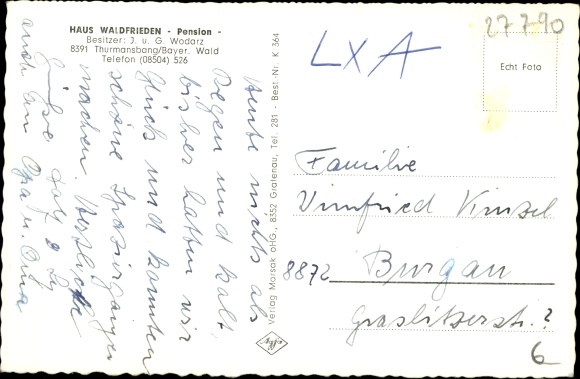 HAUS WALDFRIEDEN - Pension -
Besitzer: J. u. G. Wodarz
8391 Thurmansbang/Bayer. Wald
Telefon (08504) 526
Heute nichts als
Regen und kalt,
bisher hatten wir
Glück und konnten
schöne Spaziergänge
machen. Herzliche
Grüße
auch an Opa u. Oma
Verlag Morsak oHG., 8352 Grafenau, Tel. 281 - Best.-Nr. K 364
LXA
27 7-90
Echt Foto
Familie
Winfried Kinsel
8872 Burgau
Graslitzerstr. 2
6